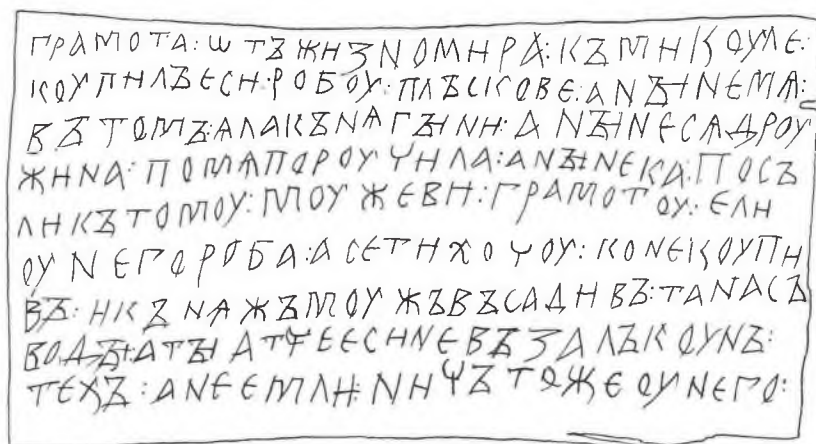 ГРАМОТА:ѠТЪЖИЗНОМИРА:КЪМИКОУЛЕ:
КОУПИЛЪЕСИ:РОБОУ:ПЛЪСКОВЕ:АНЪІНЕМѦ:
ВЪТОМЪ:АЛАКЪНѦГЪІНИ:АНЪІНЕСѦДРОУ
ЖИНА:ПОМѦПОРОУЧИЛА:АНЪІНЕКА:ПОСЪ
ЛИКЪТОМОУ:МОУЖЕВИ:ГРАМОТОУ:ЕЛИ
ОУНЕГОРОБА:АСЕТИХОЧОУ:КОНЕКОУПИ
ВЪ:ИКЪНѦЖЪМОУЖЪВЪСАДИВЪ:ТАНАСЪ
ВОДЪІ:АТЪІАТЧЕЕСИНЕВЪЗАЛЪКОУНЪ:
ТЕХЪ:АНЕЕМЛИ:НИЧЪТОЖЕОУНЕГО: